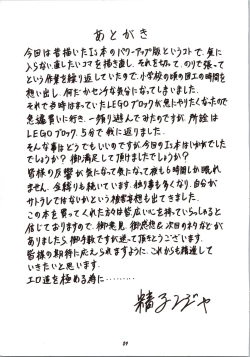 あとがき
今回は昔描いたI's本のパワーアップ版というコトで、気に
入らない直したいコマを描き直し、それを切って、のりで張って
という作業を繰り返していたので、小学校の頃の図工の時間を
想い出し、何だかセンチな気分になってしまいました。
それで当時はまっていたLEGOブロックが急にやりたくなったので
急遽買いに行き、一頻り遊んでみたのですが、所詮は
LEGOブロック。5分で我に返りました。
そんな事はどうでもいいのですが今回のI's本はいかがでした
でしょうか?御満足して頂けましたでしょうか?
皆様の反響が気になって気になって夜も6時間しか眠れ
ません。金縛りも続いています。独り事も多くなり、自分が
サトラレではないかという被害妄想も出てきました。
この本を買ってくれた方々は皆広い心を持っていらっしゃると
信じておりますので、御意見、御感想&次回のネタなどが
ありましたら、御手数ですが送って頂きとうございます。
皆様の期待に応えられますように、これからも精進して
いきたいと思います。
エロ道を極める為に………
精子ンジャ